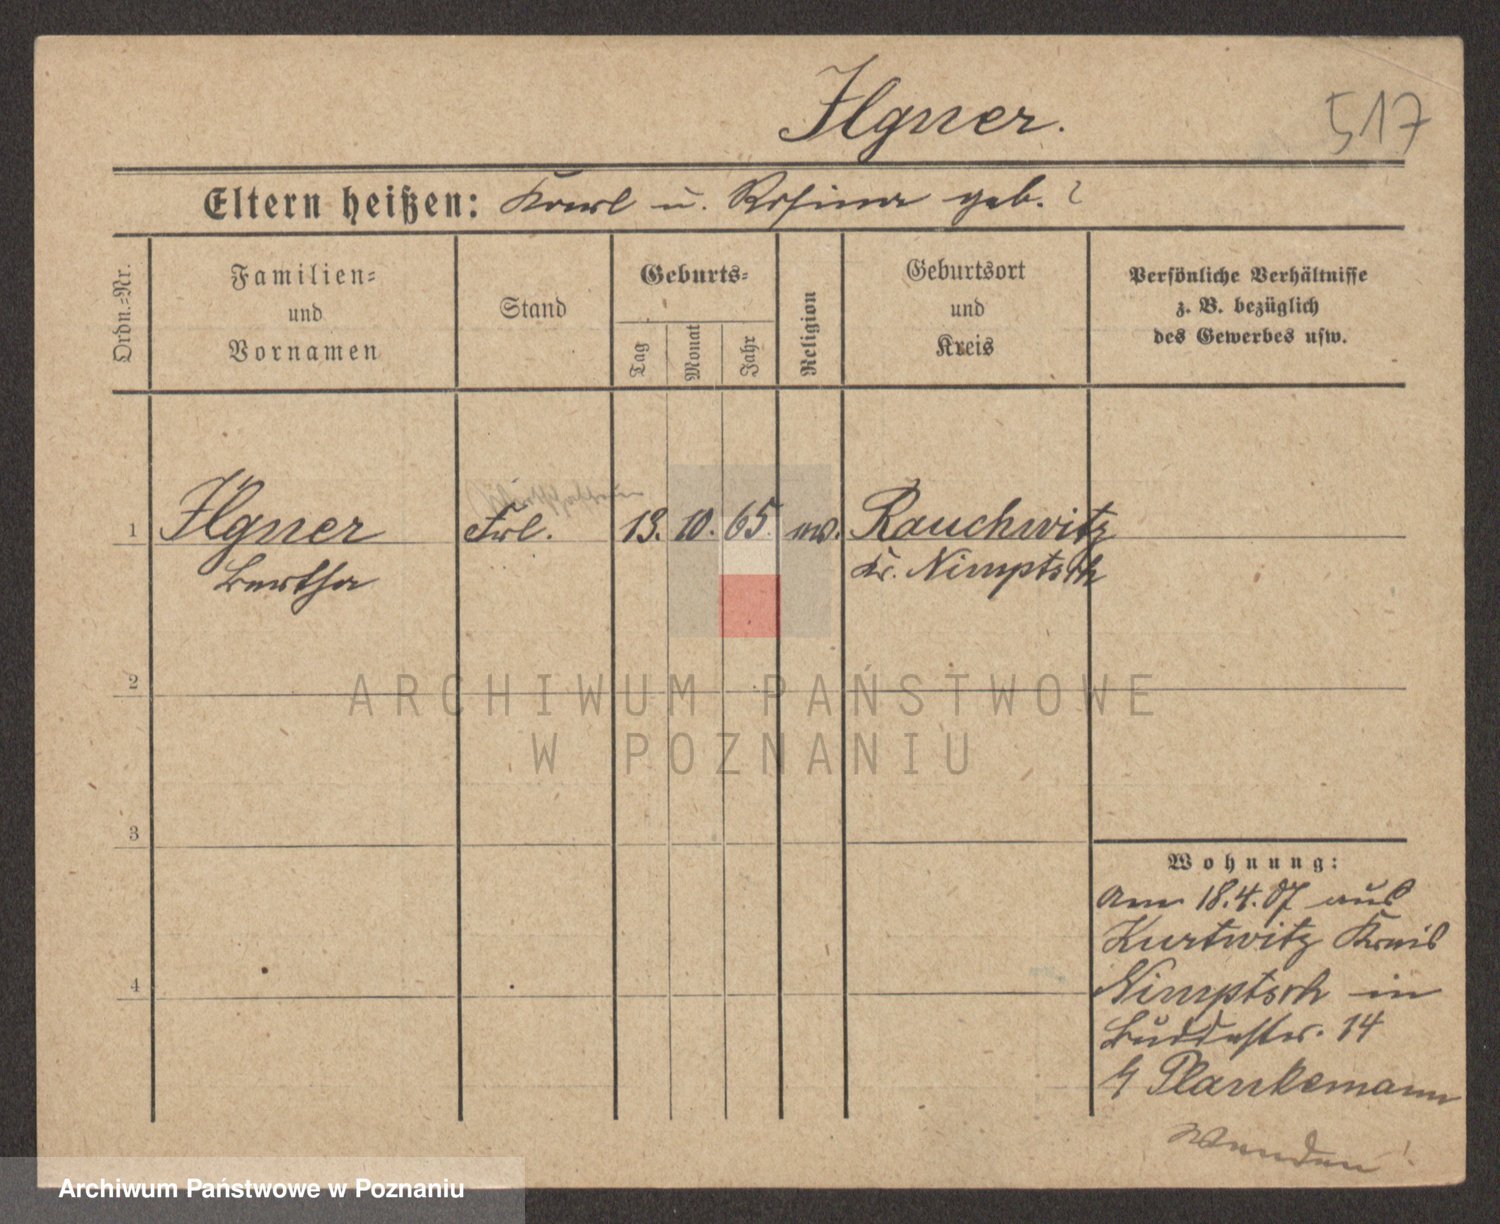 Ilgner.
517
Eltern heißen: Karl u. Rosina geb. ?
Ordn.=Nr.
Familien=
und
Vornamen
Stand
Geburts=
Tag
Monat
Jahr
Religion
Geburtsort
und
Kreis
Persönliche Verhältnisse
z. B. bezüglich
des Gewerbes usw.
Wirtschafterin
1 Ilgner Frl. 13. 10. 65. ev. Rauchwitz
Bertha Kr. Nimptsch
2
ARCHIWUM PAŃSTWOWE
W POZNANIU
3
Wohnung:
Am 18.4.07 aus
Kurtwitz Kreis
Nimptsch in
4
Buddestr. 14
b/ Plankemann
Wenden!
Archiwum Państwowe w Poznaniu